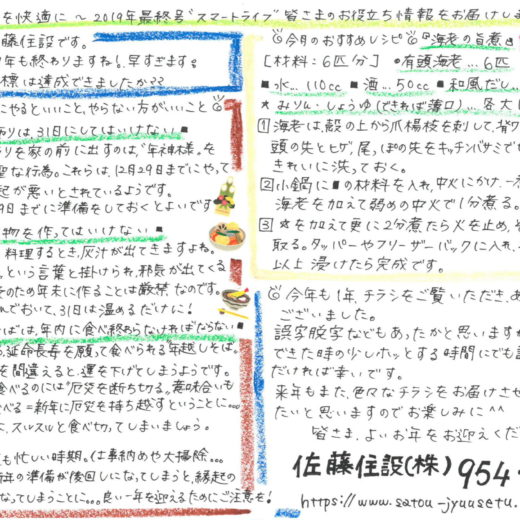 を快適に 〜 2019年最終号 "スマートライフ" 皆さまのお役立ち情報をお届けしま
藤住設です。
年も終わりますね!早すぎます
標は達成できましたか??
にやるといいこと、やらない方がいいこと
りは31日にしてはいけない
りを家の前に出すのは、"年神様"を
聖な行為。これらは、12月29日までにやって
起が悪いとされているようです。
9日までに準備をしておくとよいです
物を作ってはいけない
料理するとき、灰汁が出てきますよね。
、という言葉と掛けられ、邪気が出てくる
そのため年末に作ることは厳禁なのです。
んでおいて、31日は温めるだけに!
ばは、年内に食べ終わらなければならない
、延命長寿を願って食べられる年越しそば。
を間違えると、運を下げてしまうようです。
食べるのには"厄災を断ち切る"意味合いも
べる=新年に厄災を持ち越すということに...
に、スルスルと食べ切ってしまいましょう。
も忙しい時期。仕事納めや大掃除...
年の準備が後回しになってしまうと、縁起の
なってしまうことに...。良い一年を迎えるためにご注意を!
今月のおすすめレシピ 『海老の旨煮』
[材料:6匹/分] ●有頭海老...6匹
■水...110cc ■酒...50cc ■和風だし...
★みりん・しょうゆ(できれば薄口)...各大
1 海老は、殻の上から爪楊枝を刺して、背ワ
頭の先とヒゲ、尾、ぽの先をキッチンバサミで
きれいに洗っておく。
2 小鍋に■の材料を入れ、中火にかけ、一
海老を加えて弱めの中火で1分煮る。
3 ★を加えて更に2分煮たら火を止め、
取る。タッパーやフリーザーバックに入れ、
以上 浸けたら完成です。
今年も1年、チラシをご覧いただき、あ
ございました。
誤字脱字などもあったかと思いますが
できた時の少しホッとする時間にでも
だければ幸いです。
来年もまた、色々なチラシをお届けさせ
たいと思いますのでお楽しみに^^
皆さま、よいお年をお迎えくだ
佐藤住設(株) 954-
https://www.satou-jyuusetu.